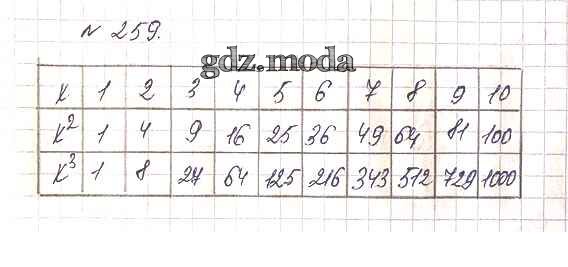 № 259.
gdz.moda
x 1 2 3 4 5 6 7 8 9 10
x² 1 4 9 16 25 36 49 64 81 100
x³ 1 8 27 64 125 216 343 512 729 1000